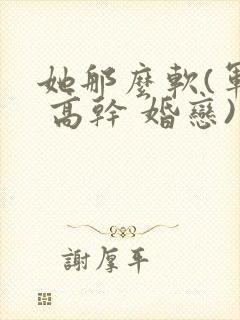 她那麼軟(軍
高幹 婚戀)
謝厚平